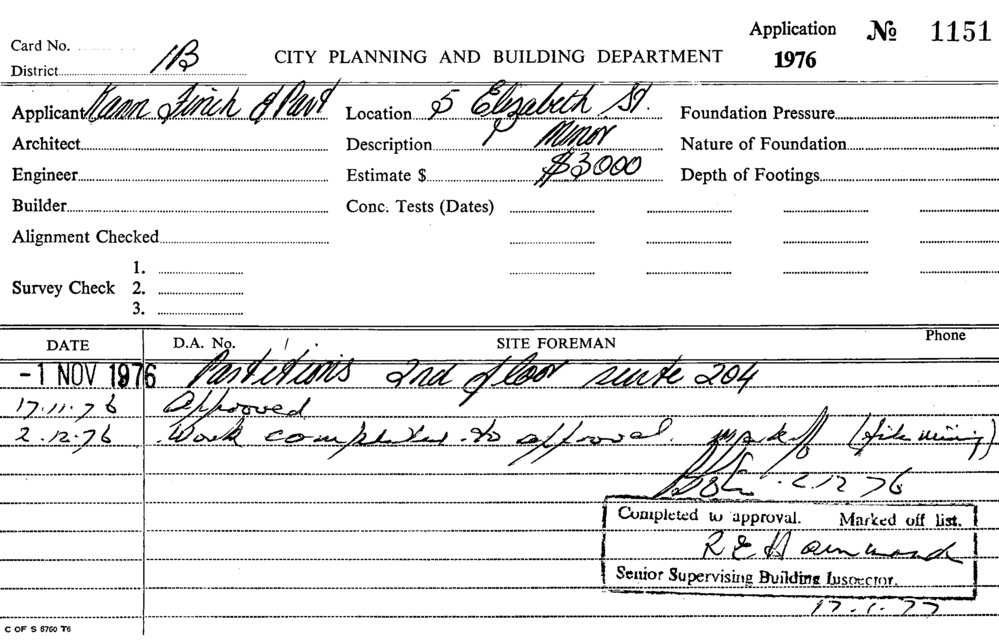 Application № 1151
Card No.
District 1B CITY PLANNING AND BUILDING DEPARTMENT 1976
Applicant Kann Finch & Part Location 5 Elizabeth St. Foundation Pressure
Architect Description Minor Nature of Foundation
Engineer Estimate $ $3000 Depth of Footings
Builder Conc. Tests (Dates)
Alignment Checked
1.
Survey Check 2.
3.
DATE D.A. No. SITE FOREMAN Phone
-1 NOV 1976 Partitions 2nd floor suite 204
17.11.76 Approved
2.12.76 Work completed to approval. mark off (file missing)
2.12.76
Completed to approval. Marked off list.
R E Hammond
Senior Supervising Building Inspector.
17.1.77
C OF S 5760 T6